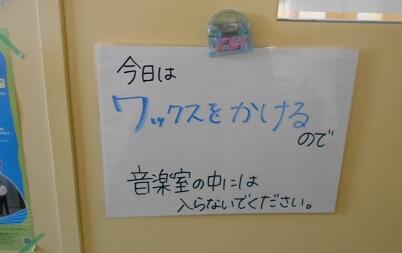 今日は
ワックスをかける
ので
音楽室の中には
入らないでください。